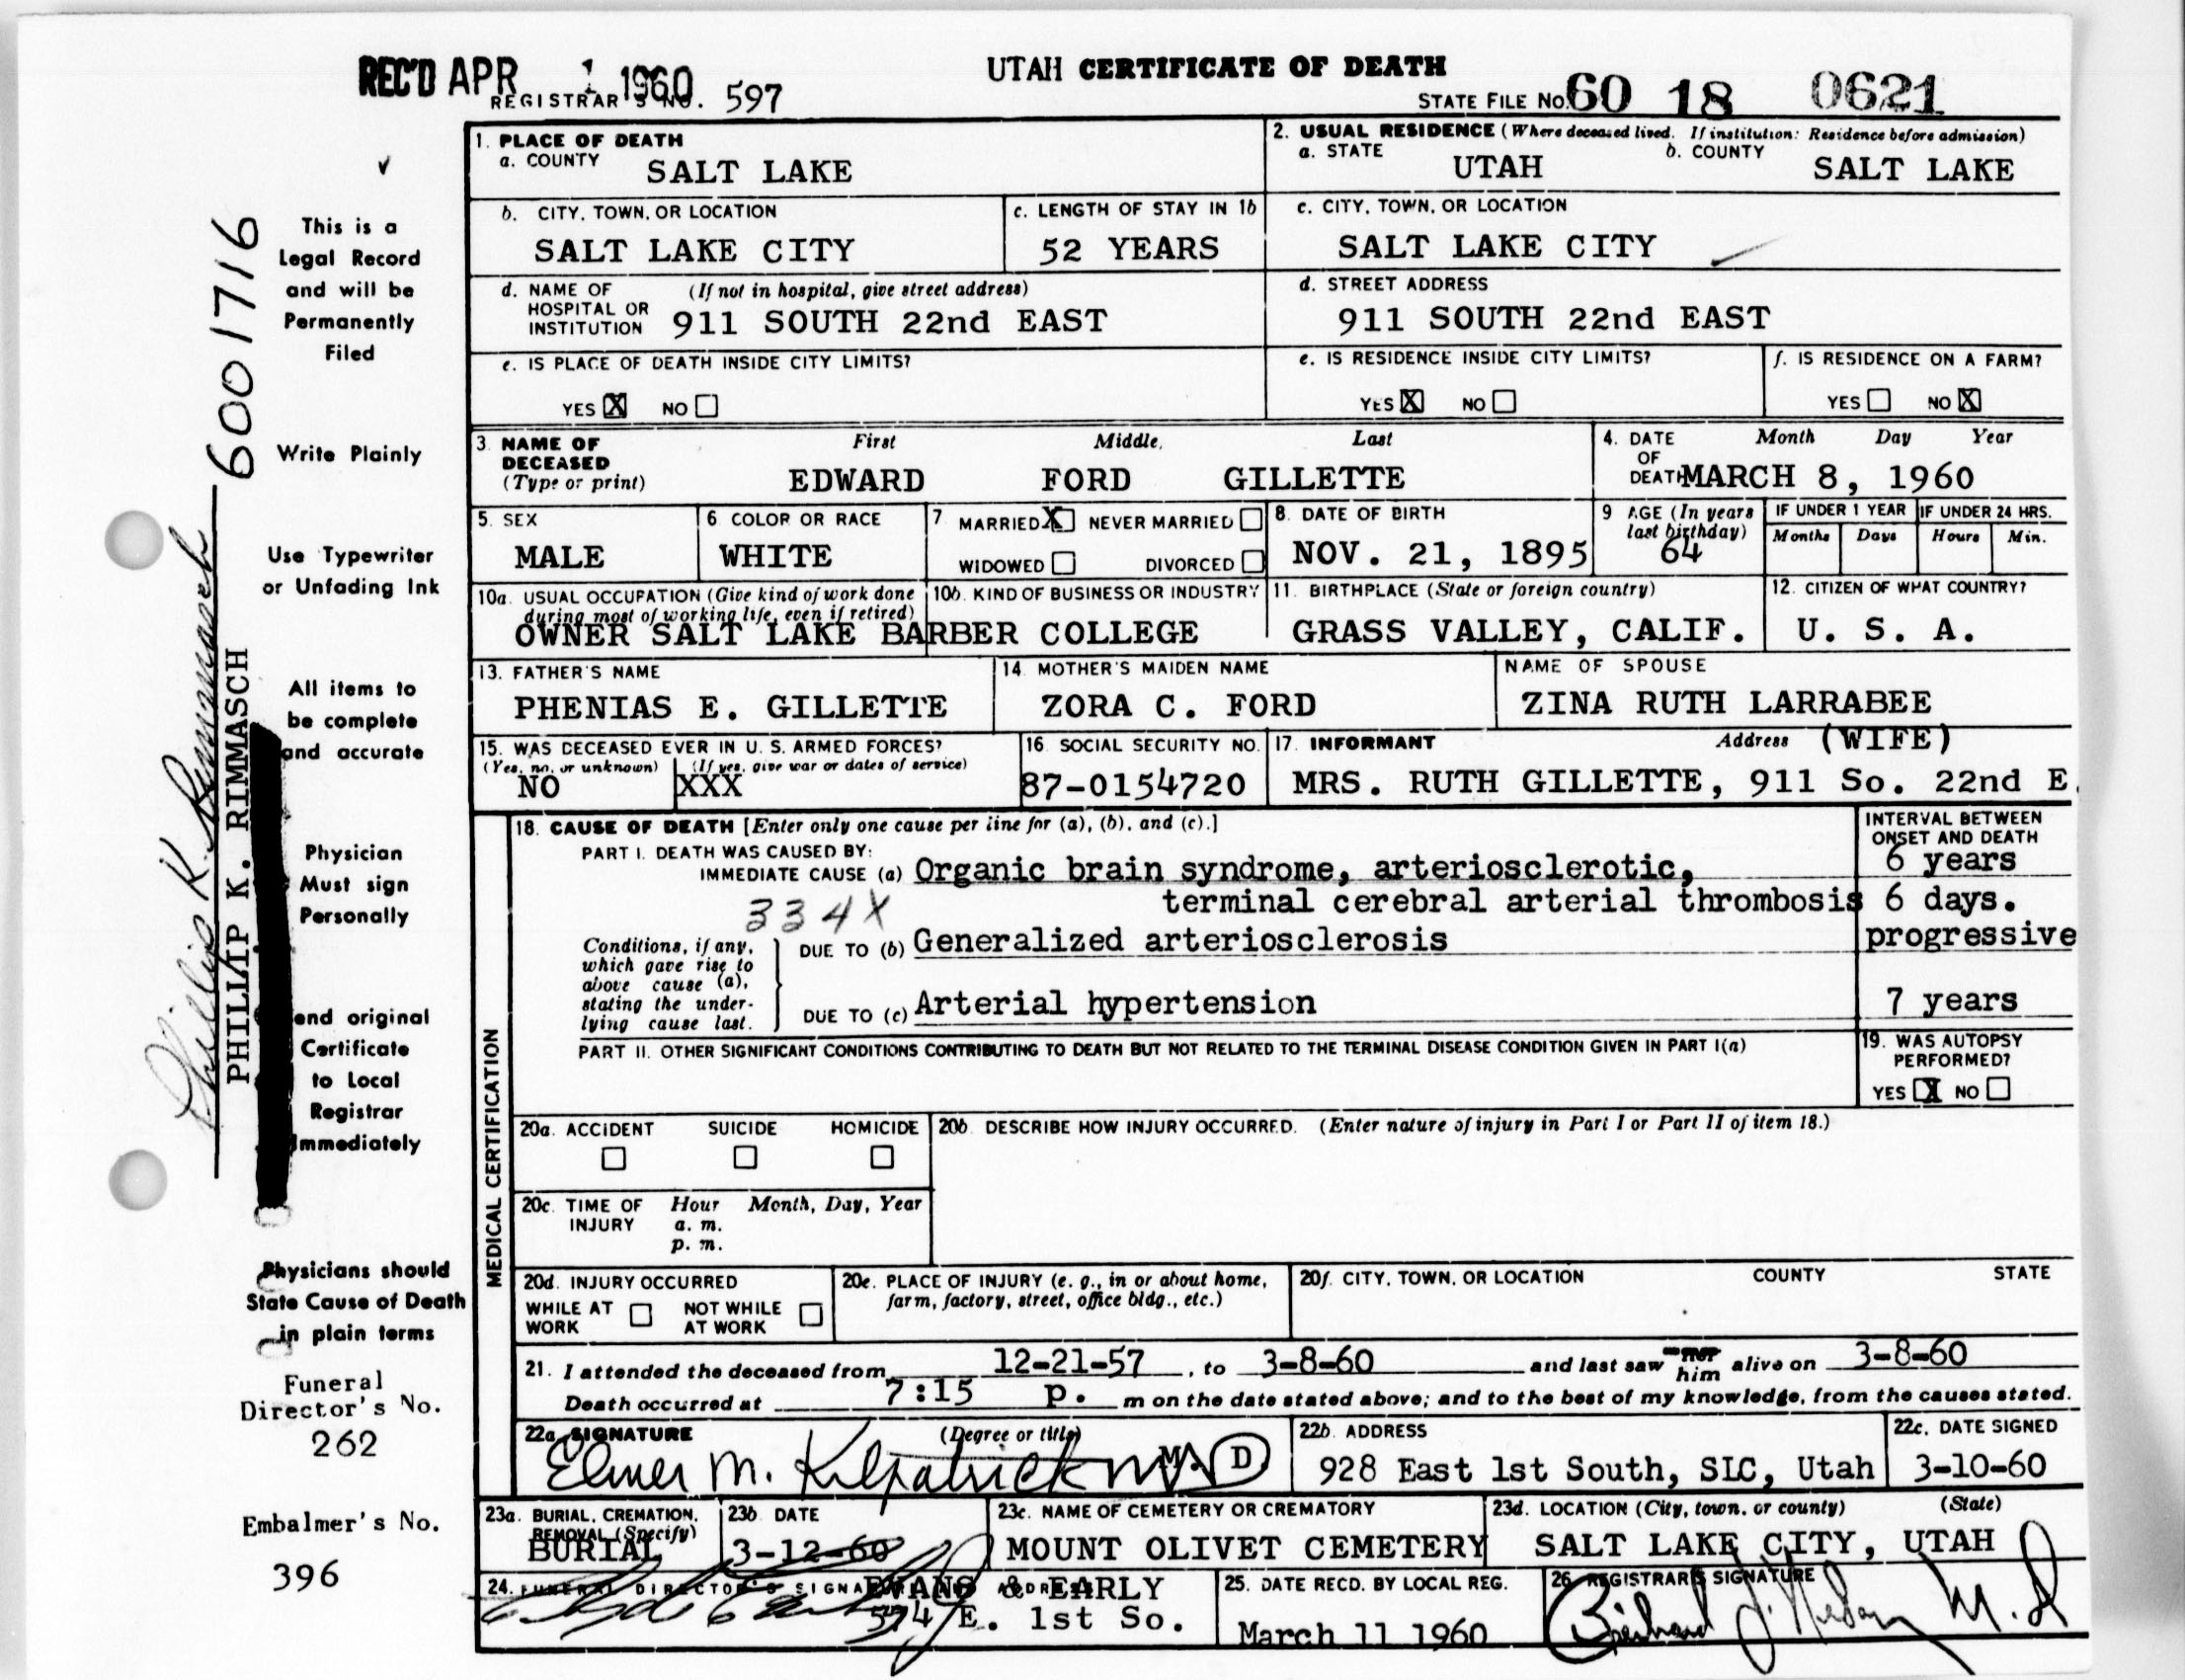 REC'D APR 1 1960
REGISTRAR'S NO. 597
UTAH CERTIFICATE OF DEATH
STATE FILE NO. 60 18 0621
1. PLACE OF DEATH
a. COUNTY SALT LAKE
2. USUAL RESIDENCE (Where deceased lived. If institution: Residence before admission)
a. STATE UTAH b. COUNTY SALT LAKE
b. CITY, TOWN, OR LOCATION SALT LAKE CITY
c. LENGTH OF STAY IN 1b 52 YEARS
c. CITY, TOWN, OR LOCATION SALT LAKE CITY
d. NAME OF HOSPITAL OR INSTITUTION (If not in hospital, give street address) 911 SOUTH 22nd EAST
d. STREET ADDRESS 911 SOUTH 22nd EAST
e. IS PLACE OF DEATH INSIDE CITY LIMITS?
YES X NO
e. IS RESIDENCE INSIDE CITY LIMITS?
YES X NO
f. IS RESIDENCE ON A FARM?
YES NO X
3. NAME OF DECEASED (Type or print)
First Middle Last
EDWARD FORD GILLETTE
4. DATE OF DEATH Month Day Year
MARCH 8, 1960
5. SEX MALE
6 COLOR OR RACE WHITE
7 MARRIED X NEVER MARRIED
WIDOWED DIVORCED
8. DATE OF BIRTH NOV. 21, 1895
9 AGE (In years last birthday) 64
IF UNDER 1 YEAR Months Days
IF UNDER 24 HRS. Hours Min.
10a. USUAL OCCUPATION (Give kind of work done during most of working life, even if retired)
10b. KIND OF BUSINESS OR INDUSTRY
OWNER SALT LAKE BARBER COLLEGE
11. BIRTHPLACE (State or foreign country) GRASS VALLEY, CALIF.
12. CITIZEN OF WHAT COUNTRY? U. S. A.
13. FATHER'S NAME PHENIAS E. GILLETTE
14. MOTHER'S MAIDEN NAME ZORA C. FORD
NAME OF SPOUSE ZINA RUTH LARRABEE
15. WAS DECEASED EVER IN U. S. ARMED FORCES?
(Yes, no, or unknown) (If yes, give war or dates of service)
NO XXX
16. SOCIAL SECURITY NO. 87-0154720
17. INFORMANT Address (WIFE)
MRS. RUTH GILLETTE, 911 So. 22nd E.
MEDICAL CERTIFICATION
18. CAUSE OF DEATH [Enter only one cause per line for (a), (b), and (c).]
INTERVAL BETWEEN ONSET AND DEATH
PART I. DEATH WAS CAUSED BY:
IMMEDIATE CAUSE (a) Organic brain syndrome, arteriosclerotic, 6 years
334X terminal cerebral arterial thrombosis 6 days.
Conditions, if any, which gave rise to above cause (a), stating the underlying cause last.
DUE TO (b) Generalized arteriosclerosis progressive
DUE TO (c) Arterial hypertension 7 years
PART II. OTHER SIGNIFICANT CONDITIONS CONTRIBUTING TO DEATH BUT NOT RELATED TO THE TERMINAL DISEASE CONDITION GIVEN IN PART I(a)
19. WAS AUTOPSY PERFORMED?
YES X NO
20a. ACCIDENT SUICIDE HOMICIDE
20b. DESCRIBE HOW INJURY OCCURRED. (Enter nature of injury in Part I or Part II of item 18.)
20c. TIME OF INJURY Hour Month, Day, Year
a. m.
p. m.
20d. INJURY OCCURRED
WHILE AT WORK NOT WHILE AT WORK
20e. PLACE OF INJURY (e. g., in or about home, farm, factory, street, office bldg., etc.)
20f. CITY, TOWN, OR LOCATION COUNTY STATE
21. I attended the deceased from 12-21-57, to 3-8-60 and last saw him alive on 3-8-60
Death occurred at 7:15 p. m on the date stated above; and to the best of my knowledge, from the causes stated.
22a. SIGNATURE (Degree or title)
Elmer M. Kilpatrick M.D. M. D.
22b. ADDRESS 928 East 1st South, SLC, Utah
22c. DATE SIGNED 3-10-60
23a. BURIAL, CREMATION, REMOVAL (Specify) BURIAL
23b DATE 3-12-60
23c. NAME OF CEMETERY OR CREMATORY MOUNT OLIVET CEMETERY
23d. LOCATION (City, town, or county) (State)
SALT LAKE CITY, UTAH
24. FUNERAL DIRECTOR'S SIGNATURE ADDRESS
EVANS & EARLY
574 E. 1st So.
25. DATE RECD. BY LOCAL REG. March 11 1960
26. REGISTRAR'S SIGNATURE
M.D
This is a
Legal Record
and will be
Permanently
Filed
Write Plainly
Use Typewriter
or Unfading Ink
All items to
be complete
and accurate
Physician
Must sign
Personally
end original
Certificate
to Local
Registrar
Immediately
Physicians should
State Cause of Death
in plain terms
Funeral
Director's No.
262
Embalmer's No.
396
6001716
Phillip K. Rimmasch
PHILLIP K. RIMMASCH